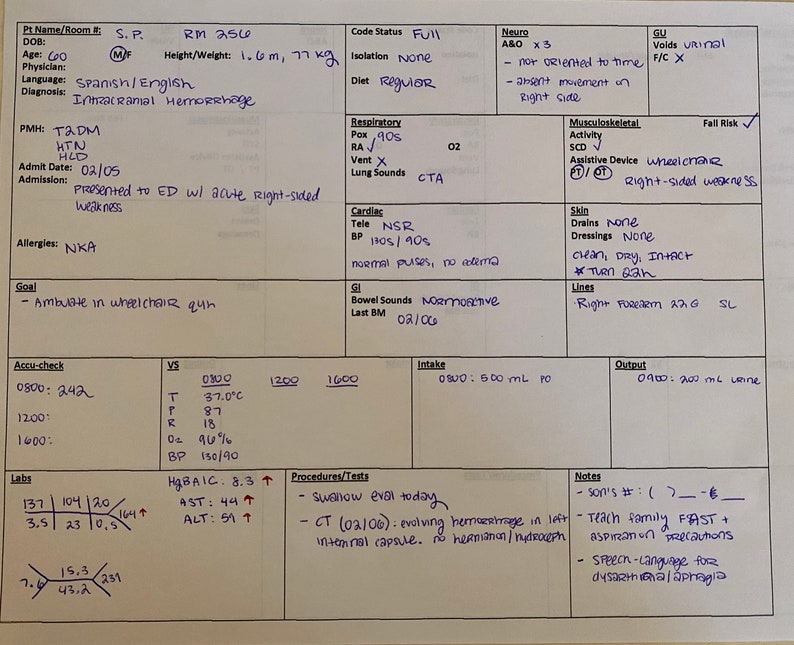 Pt Name/Room #: S.P. RM 256
DOB:
Age: 60 M/F Height/Weight: 1.6m, 77 kg
Physician:
Language: Spanish/English
Diagnosis: Intracranial Hemorrhage
PMH: T2DM
HTN
HLD
Admit Date: 02/05
Admission: Presented to ED w/ acute right-sided
weakness
Allergies: NKA
Code Status Full
Isolation None
Diet Regular
Neuro
A&O x3
- not oriented to time
- absent movement on
right side
GU
Voids urinal
F/C X
Respiratory
Pox 90s
RA ✓ O2
Vent X
Lung Sounds CTA
Musculoskeletal Fall Risk ✓
Activity
SCD ✓
Assistive Device wheelchair
PT/ OT Right-sided weakness
Cardiac
Tele NSR
BP 130s/90s
normal pulses, no edema
Skin
Drains None
Dressings None
clean, dry, intact
* Turn q2h
Goal
- Ambulate in wheelchair q4h
GI
Bowel Sounds normoactive
Last BM 02/06
Lines
Right forearm 22G SL
Accu-check
0800: 242
1200:
1600:
VS
0800 1200 1600
T 37.0°C
P 87
R 18
O2 96%
BP 130/90
Intake
0800: 500 mL PO
Output
0900: 200 mL urine
Labs
137 104 20
3.5 23 0.5 164 ↑
15.3
7.6 239
43.2
HgBA1C: 8.3 ↑
AST: 44 ↑
ALT: 59 ↑
Procedures/Tests
- swallow eval today
- CT (02/06): evolving hemorrhage in left
internal capsule. no herniation/hydroceph
Notes
- son's #: ( ) __ - __
- Teach family FAST +
aspiration precautions
- Speech-language for
dysarthria/aphagia